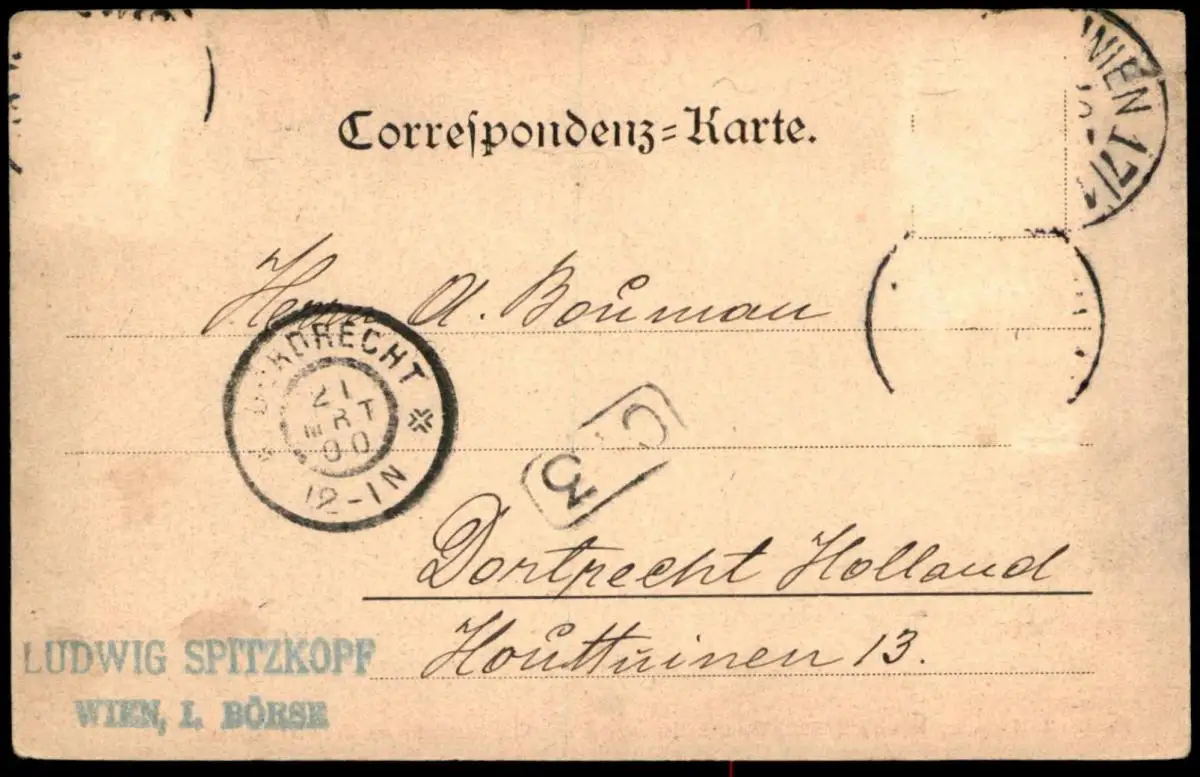 Correspondenz=Karte.
WIEN 1 7/1
Herrn A. Bouman
DORDRECHT
21
MRT
00
12-1N
3
Dortrecht Holland
Houttuinen 13.
LUDWIG SPITZKOPF
WIEN, I. BÖRSE